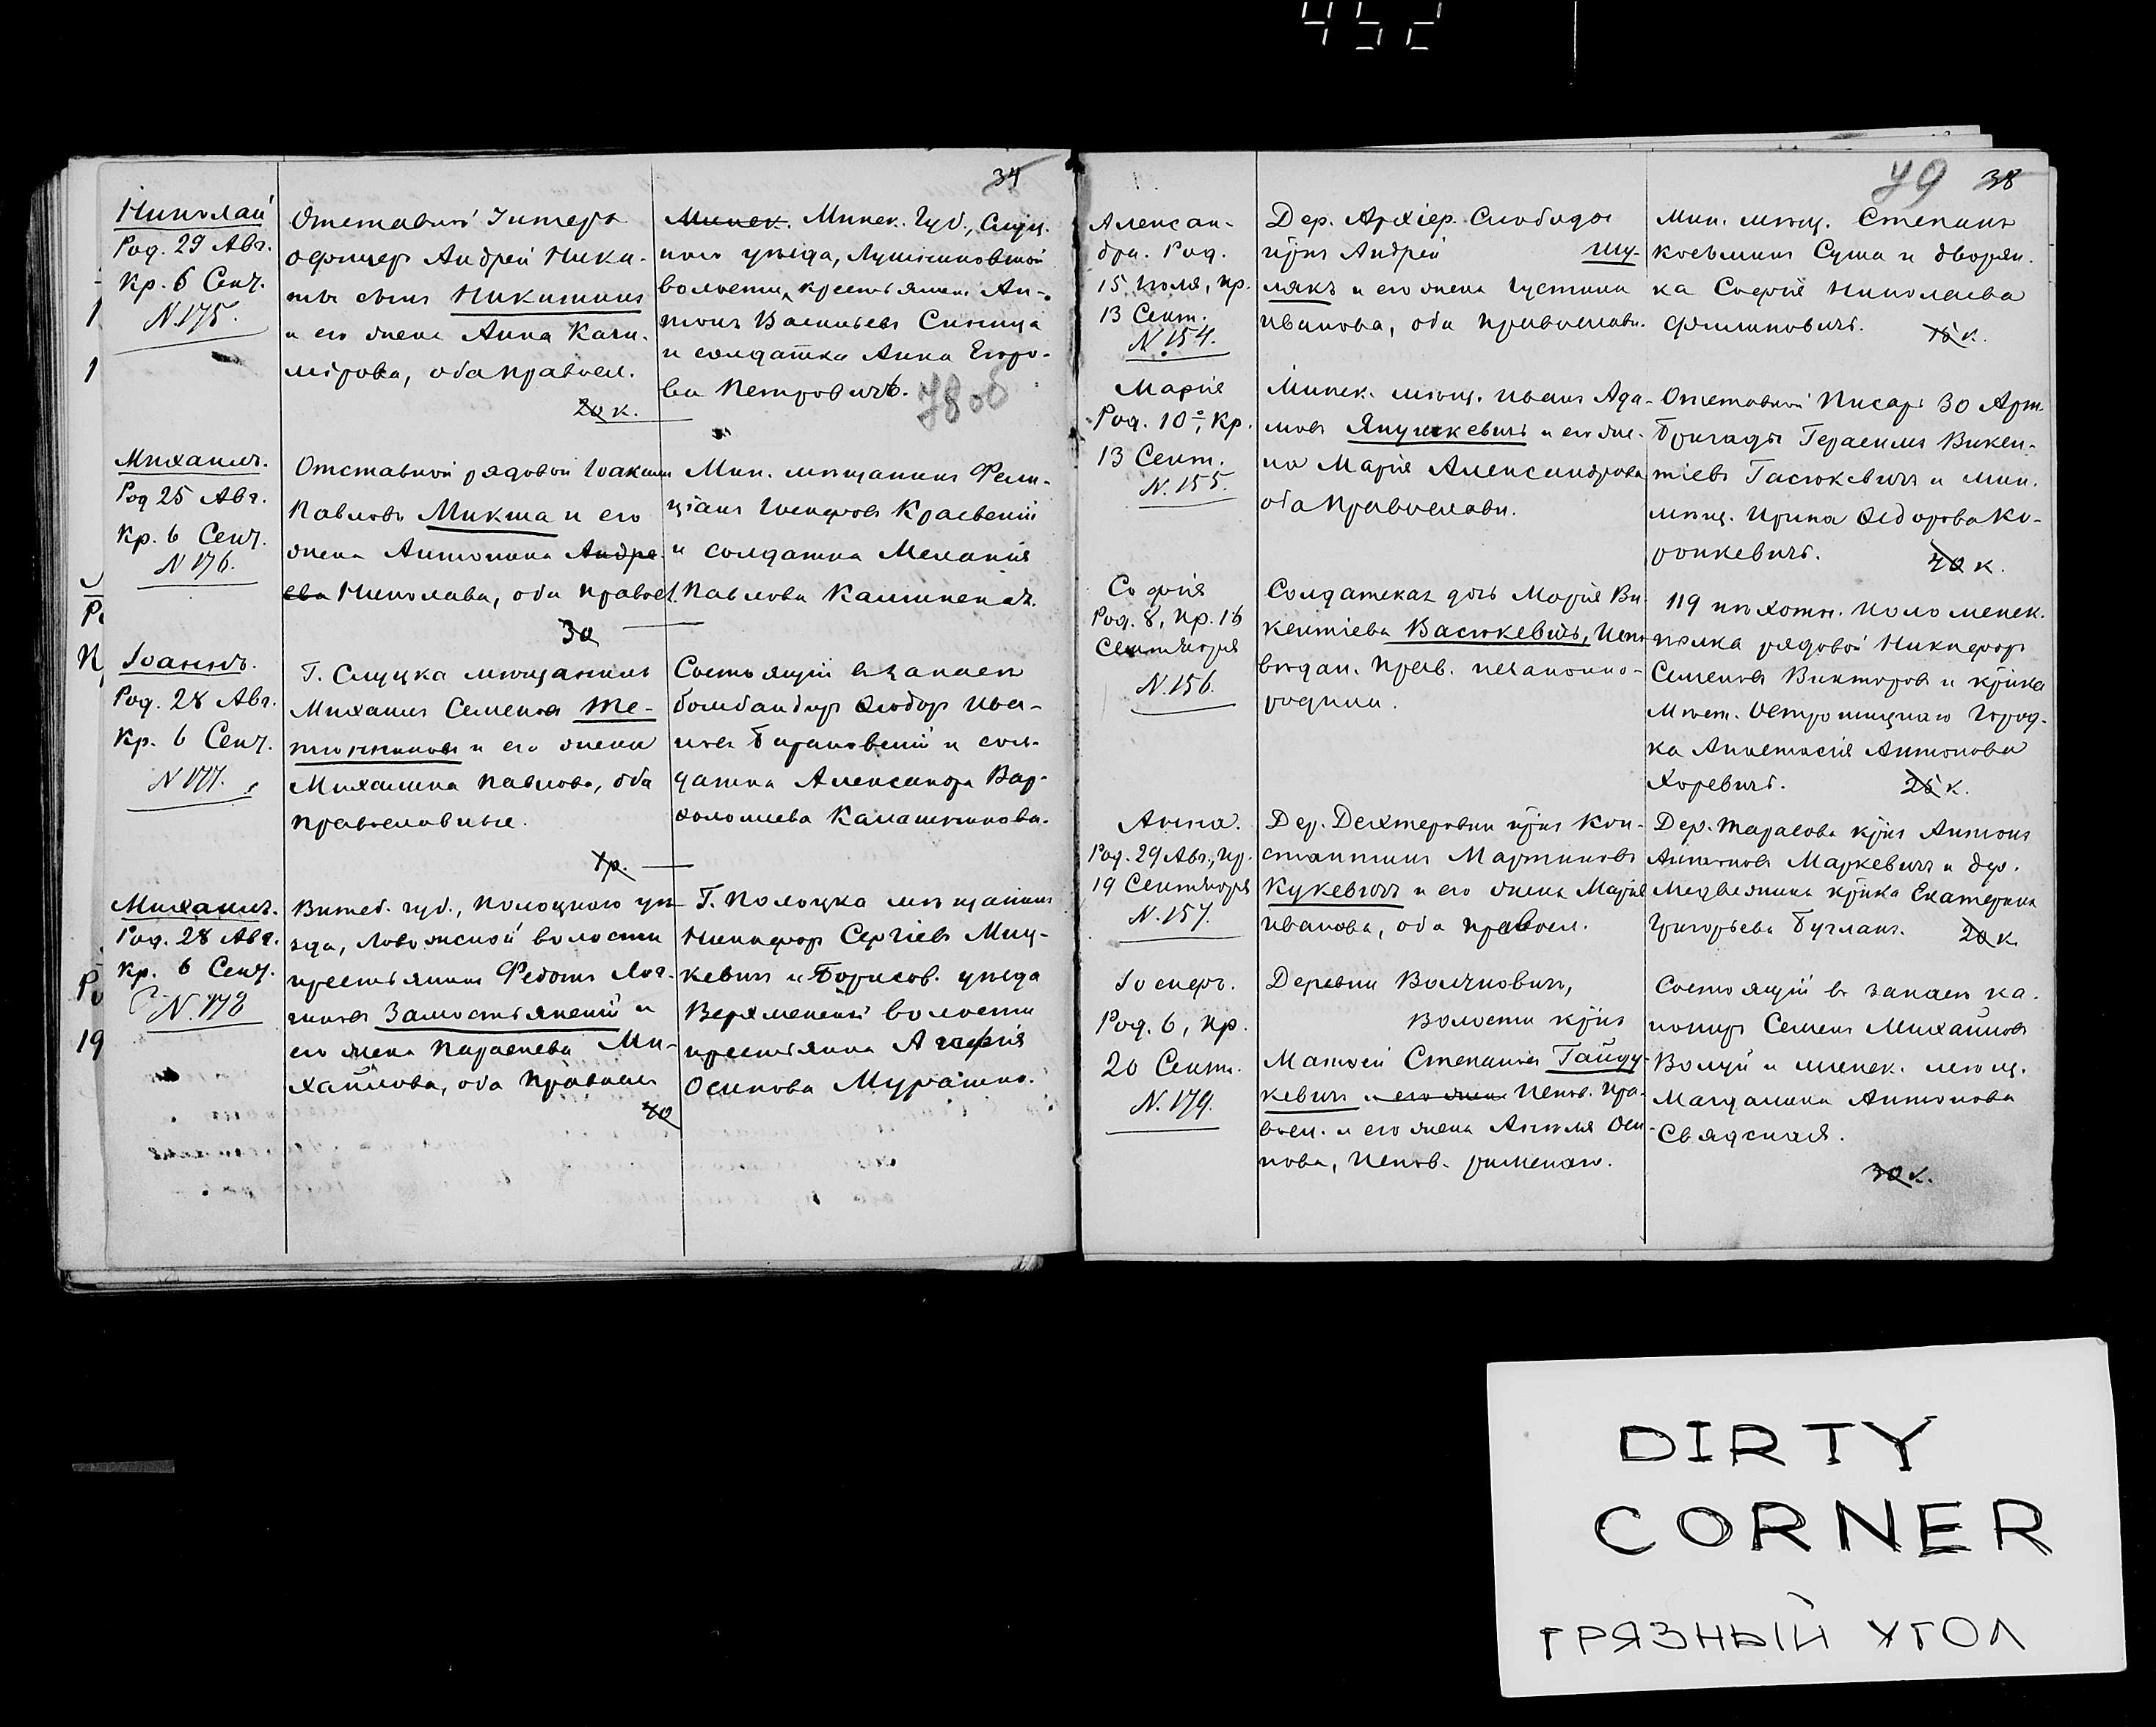 452
34
Николай
Род. 29 Авг.
Кр. 6 Сент.
N 175.
Отставной Унтеръ
офицеръ Андрей Ники-
тинъ сынъ Никитинъ
и его жена Анна Кази-
мірова, оба правосл.
20 к.
Минск. Минск. Губ., Слуц.
каго уѣзда,
волости, крестьянинъ Ан-
тонъ Васильевъ Синица
и солдатка Анна Егоро-
ва Петровичъ.
78 об
Михаилъ.
Род 25 Авг.
Кр. 6 Сент.
N 176.
Отставной рядовой Іоакимъ
Павловъ Микша и его
жена Антонина Андре
ева Николаева, оба правосл.
30
Мин. мѣщанинъ Фели-
ціанъ Іосифовъ Красовскій
и солдатка Меланія
Павлова
Іоаннъ.
Род. 28 Авг.
Кр. 6 Сент.
N 177.
Г. Слуцка мѣщанинъ
Михаилъ Семеновъ Те-
и его жена
Михалина Павлова, оба
православные.
1 р.
Состоящій въ запасѣ
бомбандиръ Ѳедоръ Ива-
новъ Барановскій и сол-
датка Александра Вар-
ѳоломеева Калашникова.
Михаилъ.
Род. 28 Авг.
Кр. 6 Сент.
N. 178
Витеб. губ., Полоцкаго уѣ-
зда, Ловожской волости
крестьянинъ Федотъ Лог-
иновъ Замостьянскій и
его жена Параскева Ми-
хайлова, оба правосл
40
Г. Полоцка мѣщанинъ
Никифоръ Сергіевъ Миц-
кевичъ и Борисов. уѣзда
Верхменской волости
крестьянка Агафія
Осипова Мурашко.
79 38
Алексан-
дра. Род.
15 Іюля, кр.
13 Сент.
N. 154.
Дер. Архіер. Слобода
кр҃нъ Андрей Шу-
лякъ и его жена Іустина
Иванова, оба православн.
Мин. мѣщ. Степанъ
Косьминъ Суша и дворян.
ка Софія Николаева
Филиповичъ.
15 к.
Марія
Род. 10го, Кр.
13 Сент.
N. 155.
Минск. мѣщ. Иванъ Ада-
мовъ Янушкевичъ и его же-
на Марія Александрова
оба православн.
Отставной Писарь 30 Арт.
Бригады Герасимъ Викен-
тіевъ Гасюкевичъ и мин.
мѣщ. Ирина Ѳедорова Ко-
ронкевичъ.
40 к.
Софія
Род. 8, кр. 16
Сентября
N. 156.
Солдатская дочь Марія Ви-
кентіева Васюкевичъ, испо-
вѣдан. прав. незаконно-
родила.
119 пѣхотн. Коломенск.
полка рядовой Никифоръ
Семеновъ Викторовъ и кр҃нка
Мѣст. Острошицкаго Город-
ка Анастасія Антонова
Хоревичъ.
25 к.
Анна.
Род. 29 Авг., кр.
19 Сентября
N. 157.
Дер. Дехтеровки кр҃нъ Кон-
стантинъ Мартиновъ
Кукевичъ и его жена Марія
Иванова, оба правосл.
Дер. Тарасова кр҃нъ Антонъ
Антоновъ Маркевичъ и дер.
Медвежина кр҃нка Екатерина
Григорьева Буглакъ.
20 к.
Іосифъ.
Род. 6, кр.
20 Сент.
N. 179.
Деревни Волчковичъ,
Волости кр҃нъ
Матѳей Степановъ Гайду-
кевичъ и его жена испов. пра-
восл. и его жена Анеля Оси-
пова, испов. римскаго.
Состоящій въ запасѣ ка-
нониръ Семенъ Михайловъ
Волуй и минск. мѣщ.
Магдалина Антонова
Свядская.
30 к.
DIRTY
CORNER
ГРЯЗНЫЙ УГОЛ